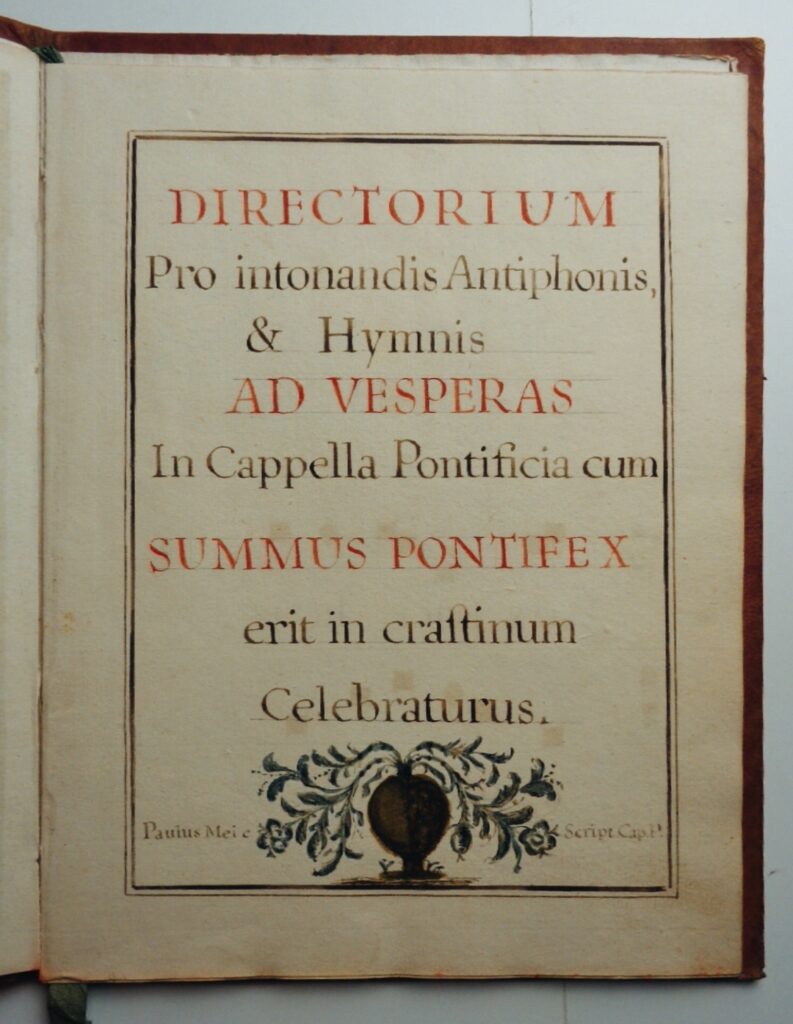 DIRECTORIUM
Pro intonandis Antiphonis,
& Hymnis
AD VESPERAS
In Cappella Pontificia cum
SUMMUS PONTIFEX
erit in craſtinum
Celebraturus.
Script. Cap. P.